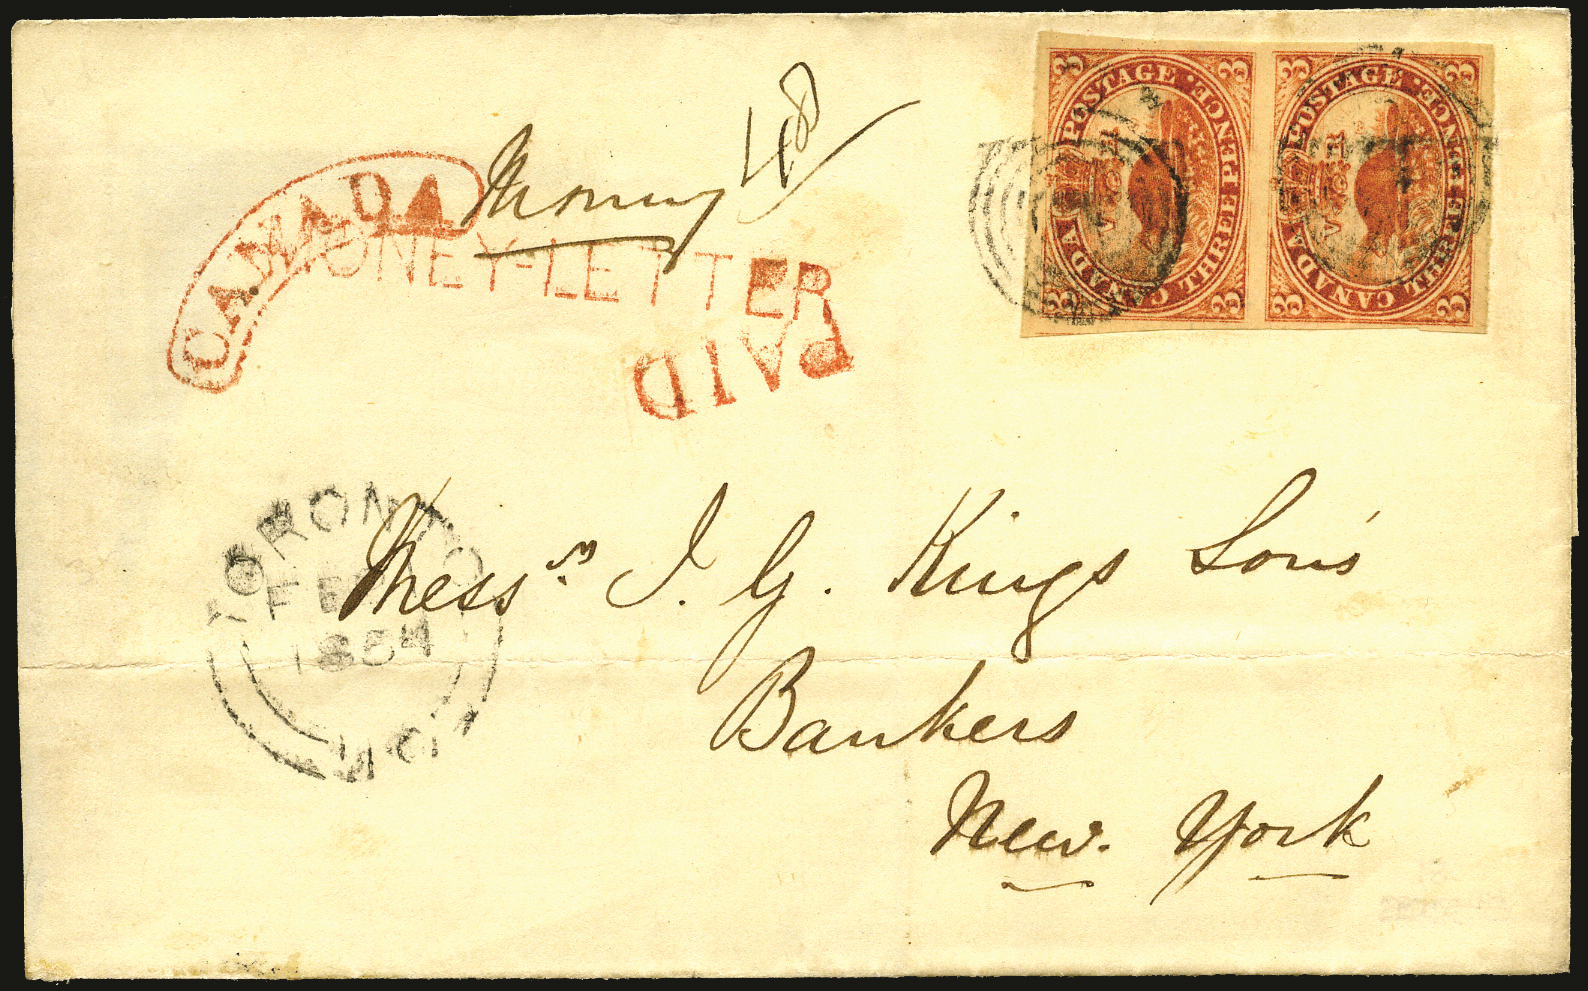 CANADA
Money
48
MONEY-LETTER
PAID
3 3
CANADA POSTAGE THREE PENCE
V R
3 3
3 3
CANADA POSTAGE THREE PENCE
V R
3 3
TORONTO
FEB
1854
Messrs. J. G. Kings Son's
Bankers
New. York